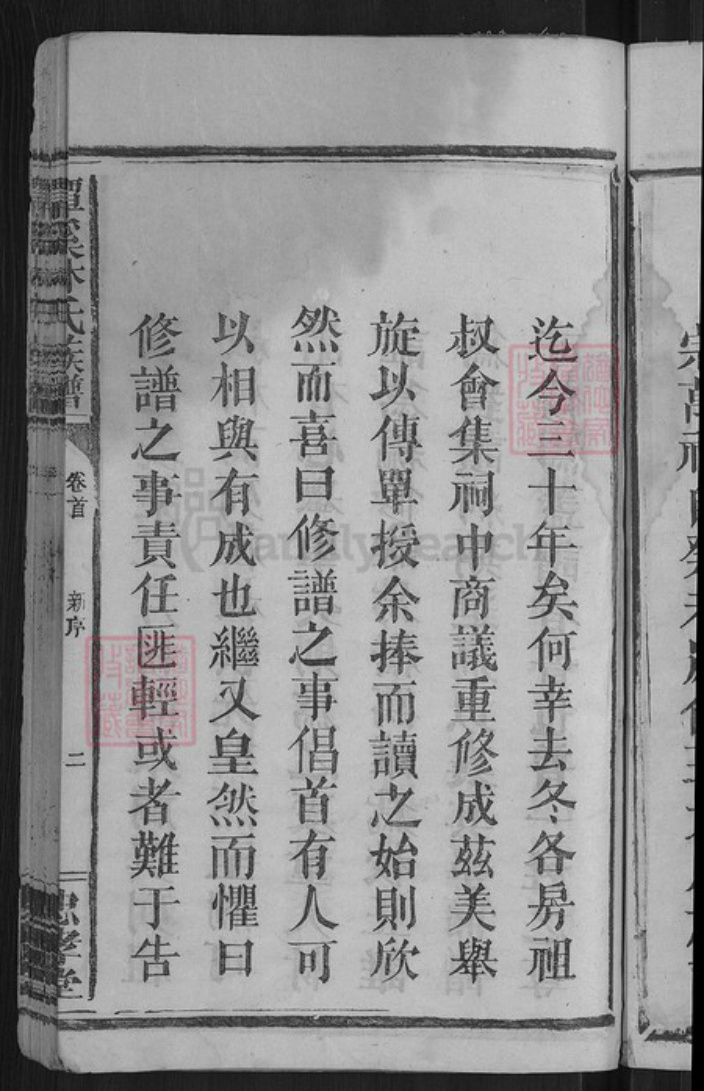 迄今三十年矣何幸去冬各房祖
叔會集祠中商議重修成茲美舉
旋以傳單授余捧而讀之始則欣
然而喜曰修譜之事倡首有人可
以相與有成也繼又皇然而懼曰
修譜之事責任匪輕或者難于告
林氏族譜
卷首
新序
二
忠孝堂
FamilySearch